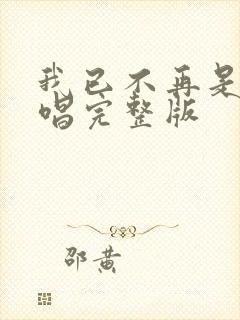 我已不再是
唱完整版
邵黄